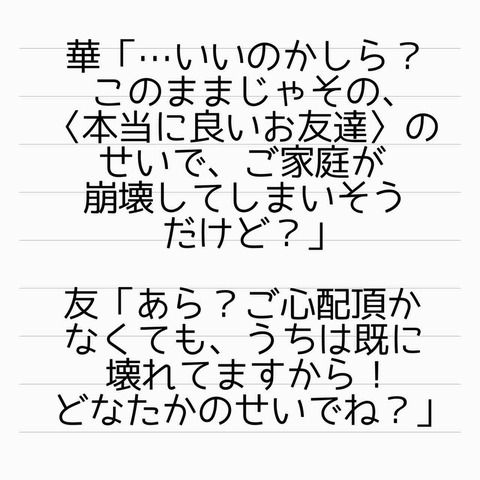 華「…いいのかしら？
このままじゃその、
〈本当に良いお友達〉の
せいで、ご家庭が
崩壊してしまいそう
だけど？」
友「あら？ご心配頂か
なくても、うちは既に
壊れてますから！
どなたかのせいでね？」